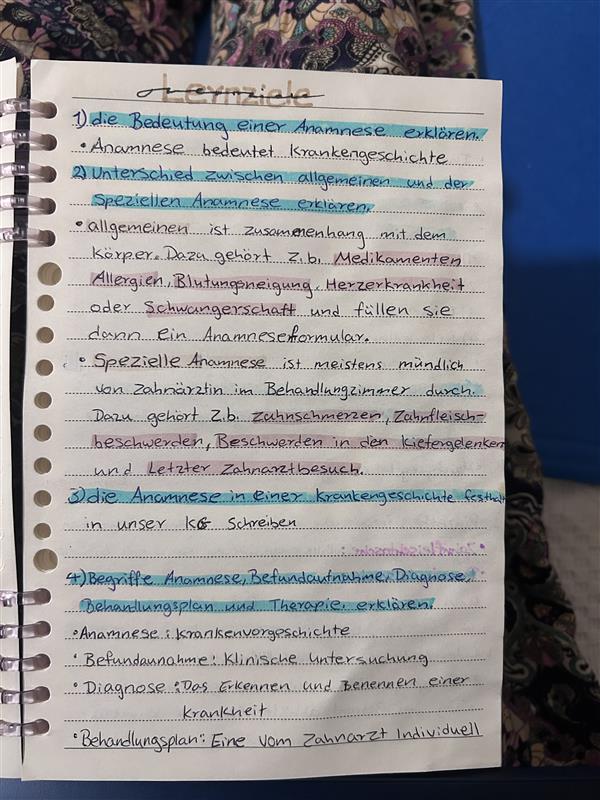 Lernziele
1) die Bedeutung einer Anamnese erklären.
• Anamnese bedeutet Krankengeschichte
2) Unterschied zwischen allgemeinen und der
Speziellen Anamnese erklären.
• allgemeinen ist zusammenhang mit dem
Körper. Dazu gehört z.b. Medikamenten
Allergien, Blutungsneigung, Herzerkrankheit
oder Schwangerschaft und füllen sie
dann ein Anamneseformular.
• Spezielle Anamnese ist meistens mündlich
von Zahnärztin im Behandlungzimmer durch.
Dazu gehört z.b. Zahnschmerzen, Zahnfleisch-
beschwerden, Beschwerden in den Kiefergelenken
und Letzter Zahnarztbesuch.
3) die Anamnese in einer Krankengeschichte
in unser KG Schreiben
4) Begriffe Anamnese, Befundaufnahme, Diagnose,
Behandlungsplan und Therapie. erklären.
• Anamnese: Krankenvorgeschichte
• Befundaunahme: Klinische untersuchung
• Diagnose: Das Erkennen und Benennen einer
Krankheit
• Behandlungsplan: Eine vom Zahnarzt Individuell